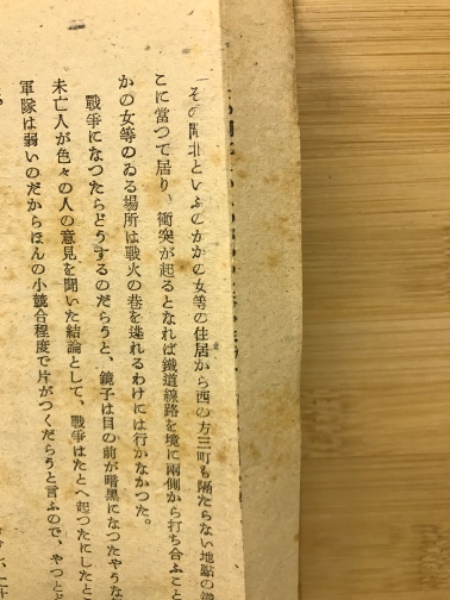 その閘北といふのがかの女等の住居から西の方三町も隔たらない地點の鐵
こに當つて居り、衝突が起るとなれば鐵道線路を境に兩側から打ち合ふこと
かの女等のゐる場所は戰火の巷を逃れるわけには行かなかつた。
戰爭になつたらどうするのだらうと、鏡子は目の前が暗黑になつたやうな
未亡人が色々の人の意見を聞いた結論として、戰爭はたとへ起つたにしたとこ
軍隊は弱いのだからほんの小競合程度で片がつくだらうと言ふので、やつと